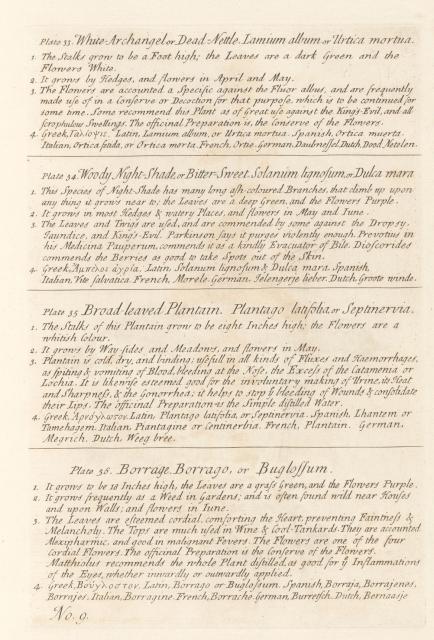 Plate 33. White Archangel or Dead Nettle. Lamium album or Urtica mortua.
1. The Stalks grow to be a Foot high; the Leaves are a dark Green and the
Flowers White.
2. It grows by Hedges, and flowers in April and May.
3. The Flowers are accounted a Specific against the Fluor albus, and are frequently
made use of in a Conserve or Decoction for that purpose, which is to be continued for
some time. Some recommend this Plant as of Great use against the King's Evil, and all
scrophulous Swellings. The officinal Preparation is, the Conserve of the Flowers.
4. Greek, Γαλιοψις. Latin, Lamium album, or Urtica mortua. Spanish, Ortica muerta.
Italian, Ortica fetida, or Ortica morta. French, Ortie. German, Daubnessel. Dutch, Doed, Netelen.
Plate 34. Woody Night-Shade, or Bitter-Sweet. Solanum lignosum, or Dulca mara
1. This Species of Night-Shade has many long ash-coloured Branches, that climb up upon
any thing it grows near to; the Leaves are a deep Green, and the Flowers Purple.
2. It grows in most Hedges & watery Places, and flowers in May and Iune.
3. The Leaves and Twigs are used, and are commended by some against the Dropsy,
Jaundice, and King's Evil. Parkinson says it purges violently enough. Prevotius in
his Medicina Pauperum, commends it as a kindly Evacuator of Bile. Dioscorides
commends the Berries as good to take Spots out of the Skin.
4. Greek, Αμπελος ἀγρία. Latin, Solanum lignosum & Dulca mara. Spanish,
Italian, Vite salvatica. French, Morele. German, Jelengerje lieber. Dutch, Groote winde.
Plate 35 Broad leaved Plantain. Plantago latifolia, or Septinervia.
1. The Stalks of this Plantain grow to be eight Inches high; the Flowers are a
whitish Colour.
2. It grows by Way-sides and Meadows, and flowers in May.
3. Plantain is cold, dry, and binding; usefull in all kinds of Fluxes and Haemorrhages,
as spiting & vomiting of Blood, bleeding at the Nose, the Excess of the Catamenia or
Lochia. It is likewise esteemed good for the involuntary making of Urine, its Heat
and Sharpness, & the Gonorrhea; it helps to stop ye bleeding of Wounds & consolidate
their Lips. The officinal Preparation is the Simple distilled Water.
4. Greek, Αρνόγλωσσον. Latin, Plantago latifolia, or Septinervia. Spanish, Lhantem or
Tamehagem. Italian, Piantagine or Centinerbia. French, Plantain. German,
Megrich. Dutch, Weeg bree.
Plate 36. Borrage. Borrago, or Buglossum.
1. It grows to be 18 Inches high, the Leaves are a grass Green, and the Flowers Purple.
2. It grows frequently as a Weed in Gardens; and is often found wild near Houses
and upon Walls; and flowers in Iune.
3. The Leaves are esteemed cordial, comforting the Heart, preventing Faintness &
Melancholy. The Tops are much used in Wine & Cool-Tankards. They are accounted
Alexipharmic, and good in malignant Fevers. The Flowers are one of the four
cordial Flowers. The officinal Preparation is the Conserve of the Flowers.
Matthiolus recommends the whole Plant distilled, as good for ye Inflammations
of the Eyes, whether inwardly or outwardly applied.
4. Greek, Βούγλοσσον. Latin, Borrago or Buglossum. Spanish, Borraja, Borrajenes,
Borrajes. Italian, Borragine. French, Borrache. German, Burretsch. Dutch, Bernaasje
No. 9.